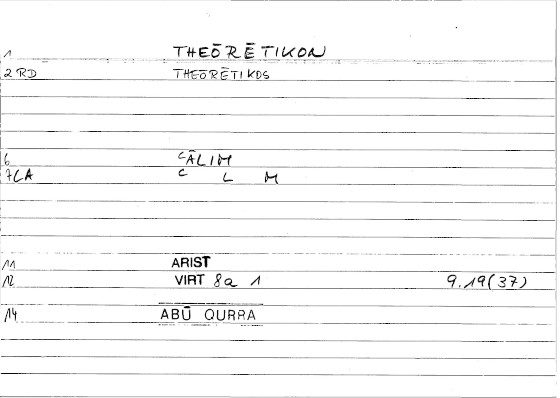 1 THEŌRĒTIKON
2 RD THEŌRĒTIKOS
6 ᶜĀLIM
7LA ᶜ L M
11 ARIST
12 VIRT 8a 1 9.19(37)
14 ABŪ QURRA